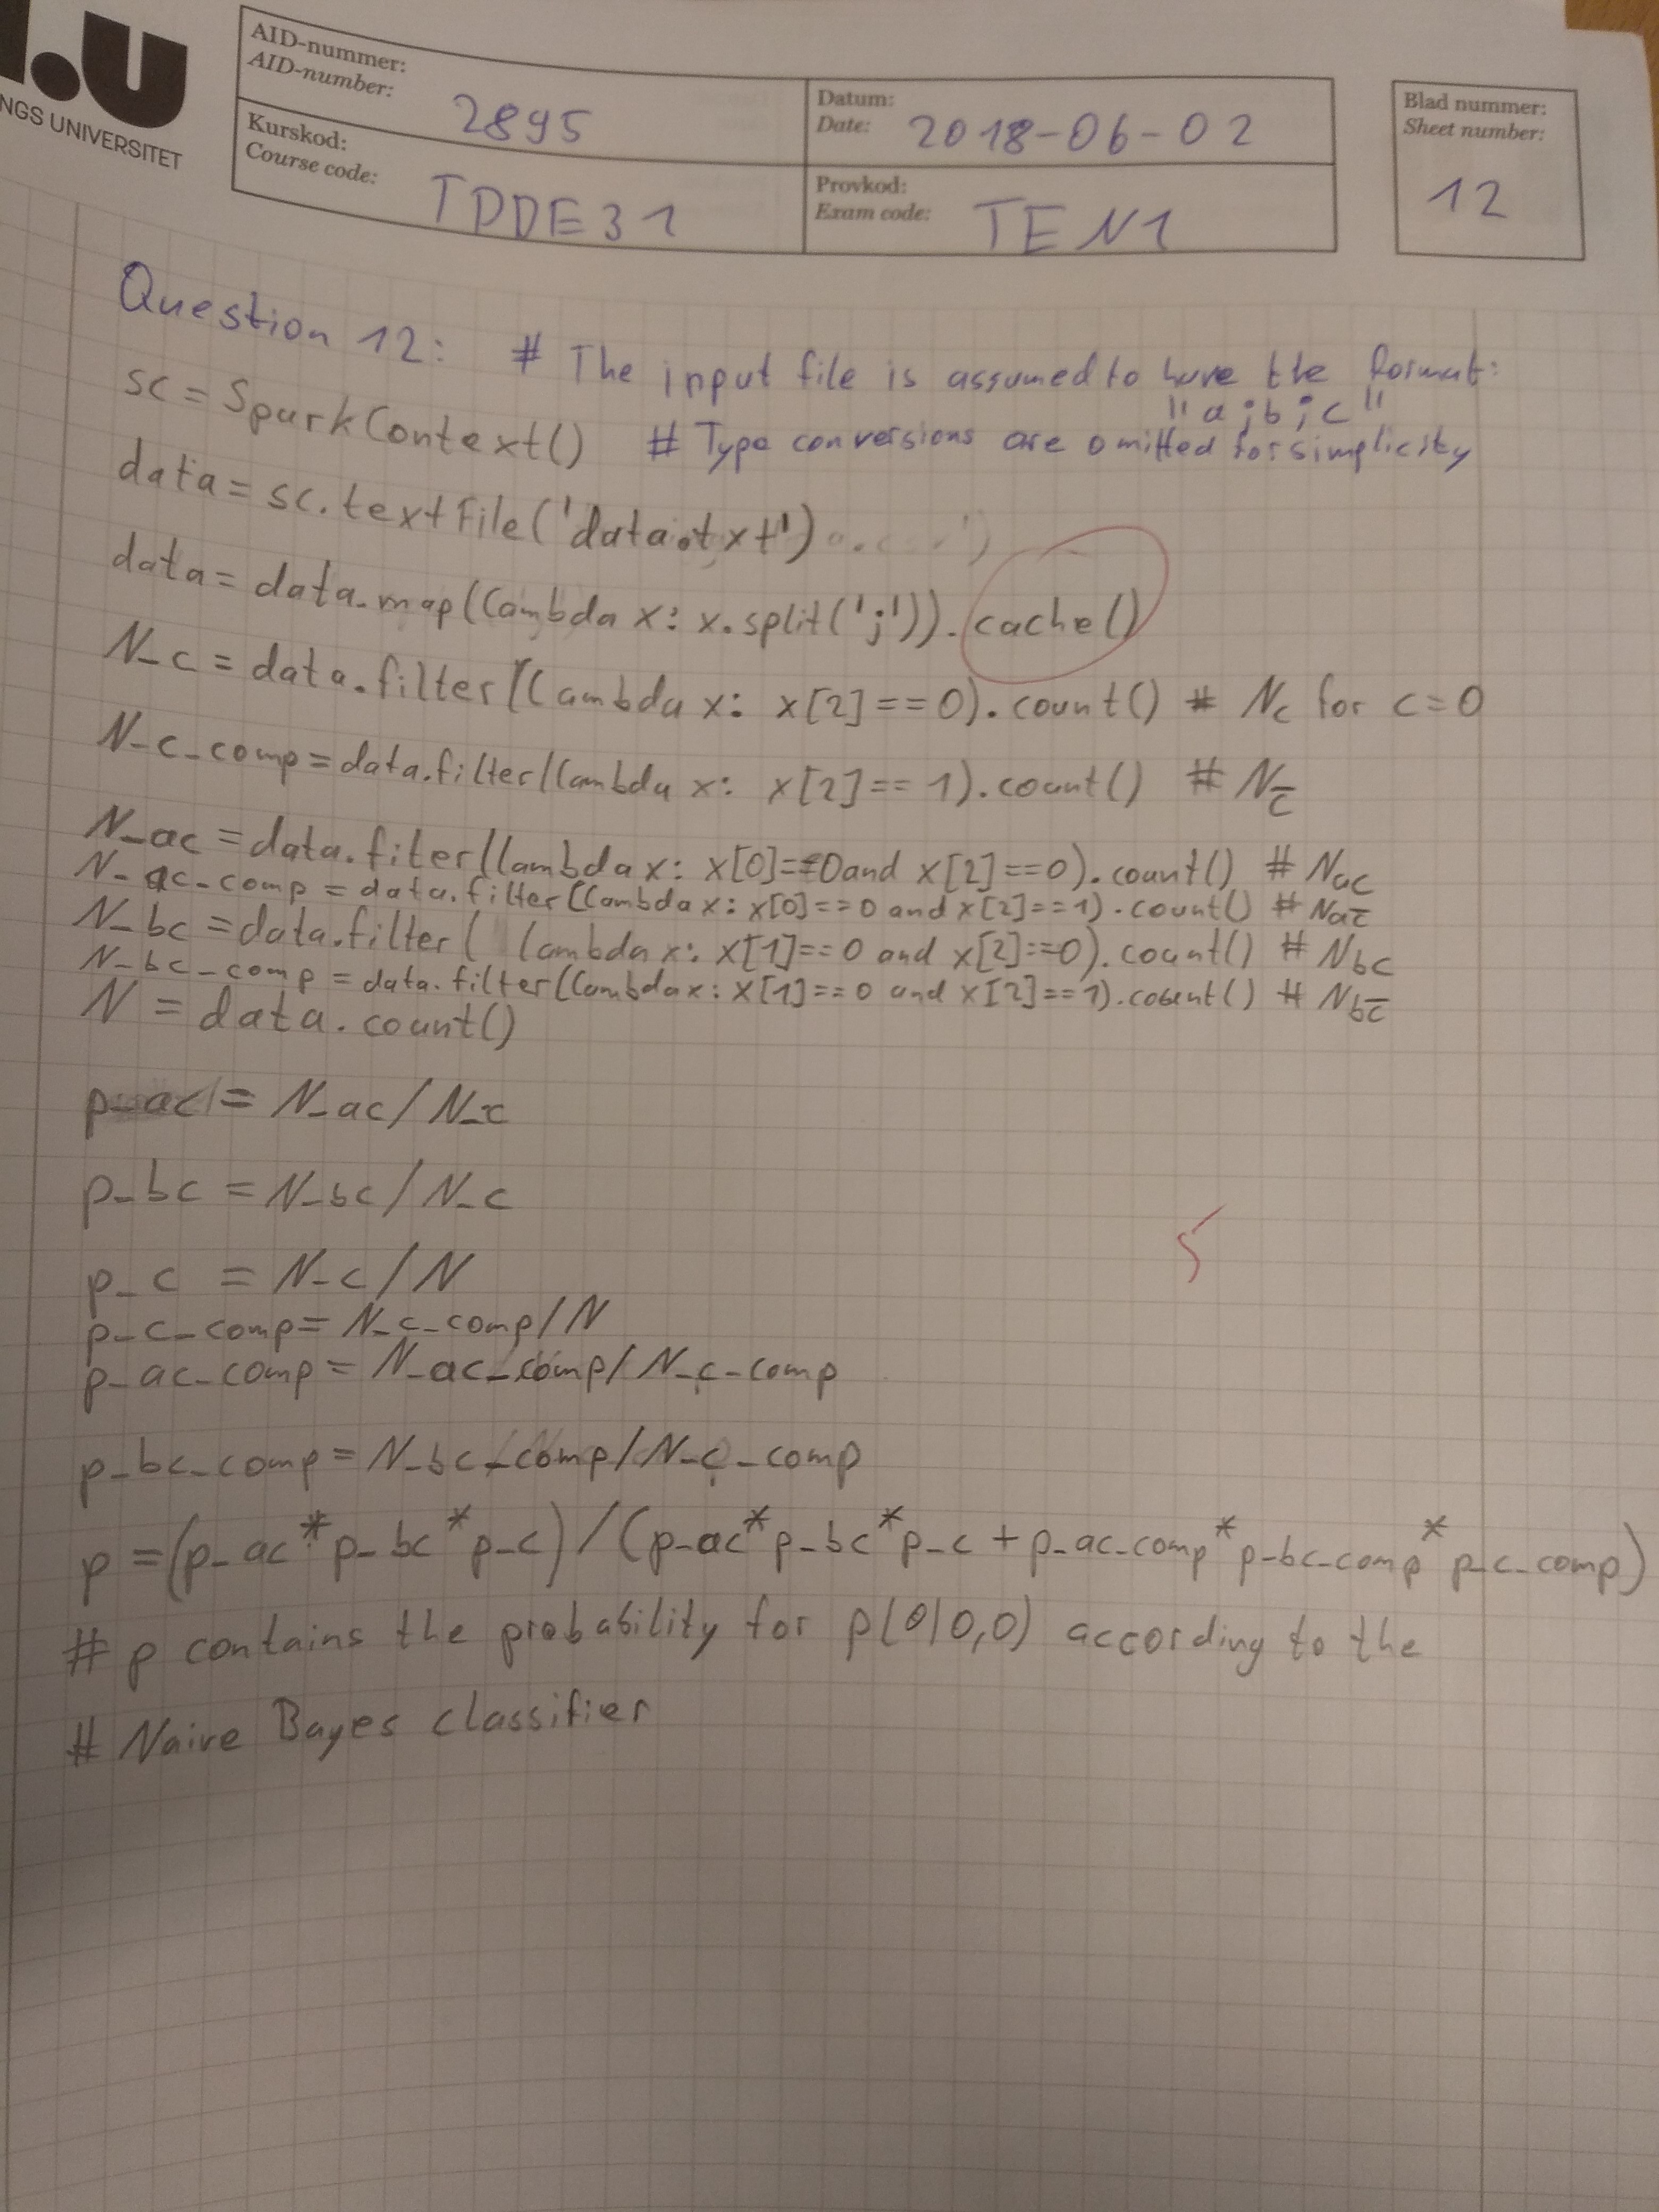 I.U
NGS UNIVERSITET
AID-nummer:
AID-number: 2895
Datum:
Date: 2018-06-02
Blad nummer:
Sheet number:
12
Kurskod:
Course code: TDDE31
Provkod:
Exam code: TEN1
Question 12: # The input file is assumed to have the format:
"a;b;c"
sc = SparkContext() # Type conversions are omitted for simplicity
data = sc.textFile('data.txt')
data = data.map(lambda x: x.split(';')).cache()
N_c = data.filter(lambda x: x[2]==0).count() # Nc for c=0
N_c_comp = data.filter(lambda x: x[2]==1).count() # Nc̅
N_ac = data.fiter(lambda x: x[0]==0 and x[2]==0).count() # Nac
N_ac_comp = data.filter(lambda x: x[0]==0 and x[2]==1).count() # Nac̅
N_bc = data.filter( lambda x: x[1]==0 and x[2]==0).count() # Nbc
N_bc_comp = data.filter(lambda x: x[1]==0 and x[2]==1).count() # Nbc̅
N = data.count()
p_ac = N_ac/N_c
p_bc = N_bc/N_c
p_c = N_c/N
p_c_comp = N_c_comp/N
p_ac_comp = N_ac_comp/N_c_comp
5
p_bc_comp = N_bc_comp/N_c_comp
p = (p_ac * p_bc * p_c) / (p_ac * p_bc * p_c + p_ac_comp * p_bc_comp * p_c_comp)
# p contains the probability for p(0|0,0) according to the
# Naive Bayes classifier